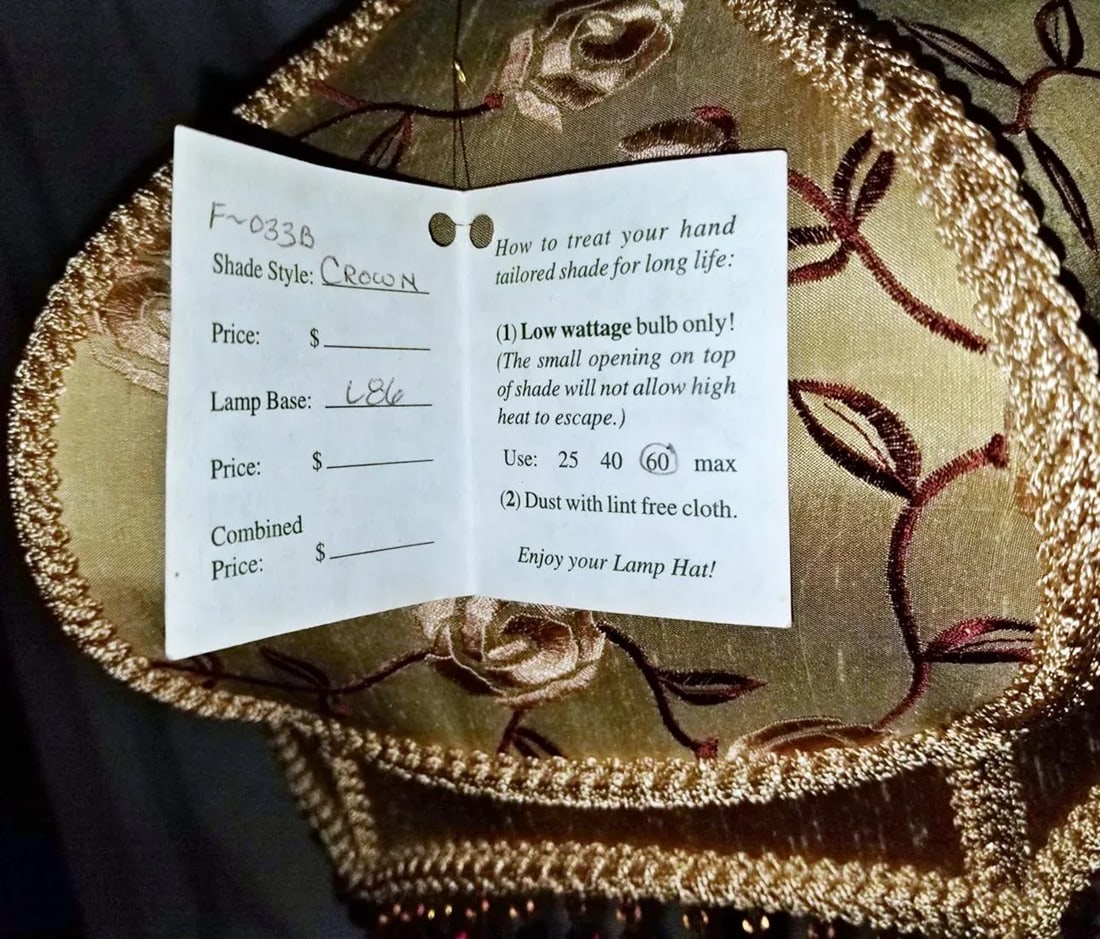 F~033B
Shade Style: CROWN
Price: $
Lamp Base: L86
Price: $
Combined
Price: $
How to treat your hand
tailored shade for long life:
(1) Low wattage bulb only!
(The small opening on top
of shade will not allow high
heat to escape.)
Use: 25 40 60 max
(2) Dust with lint free cloth.
Enjoy your Lamp Hat!